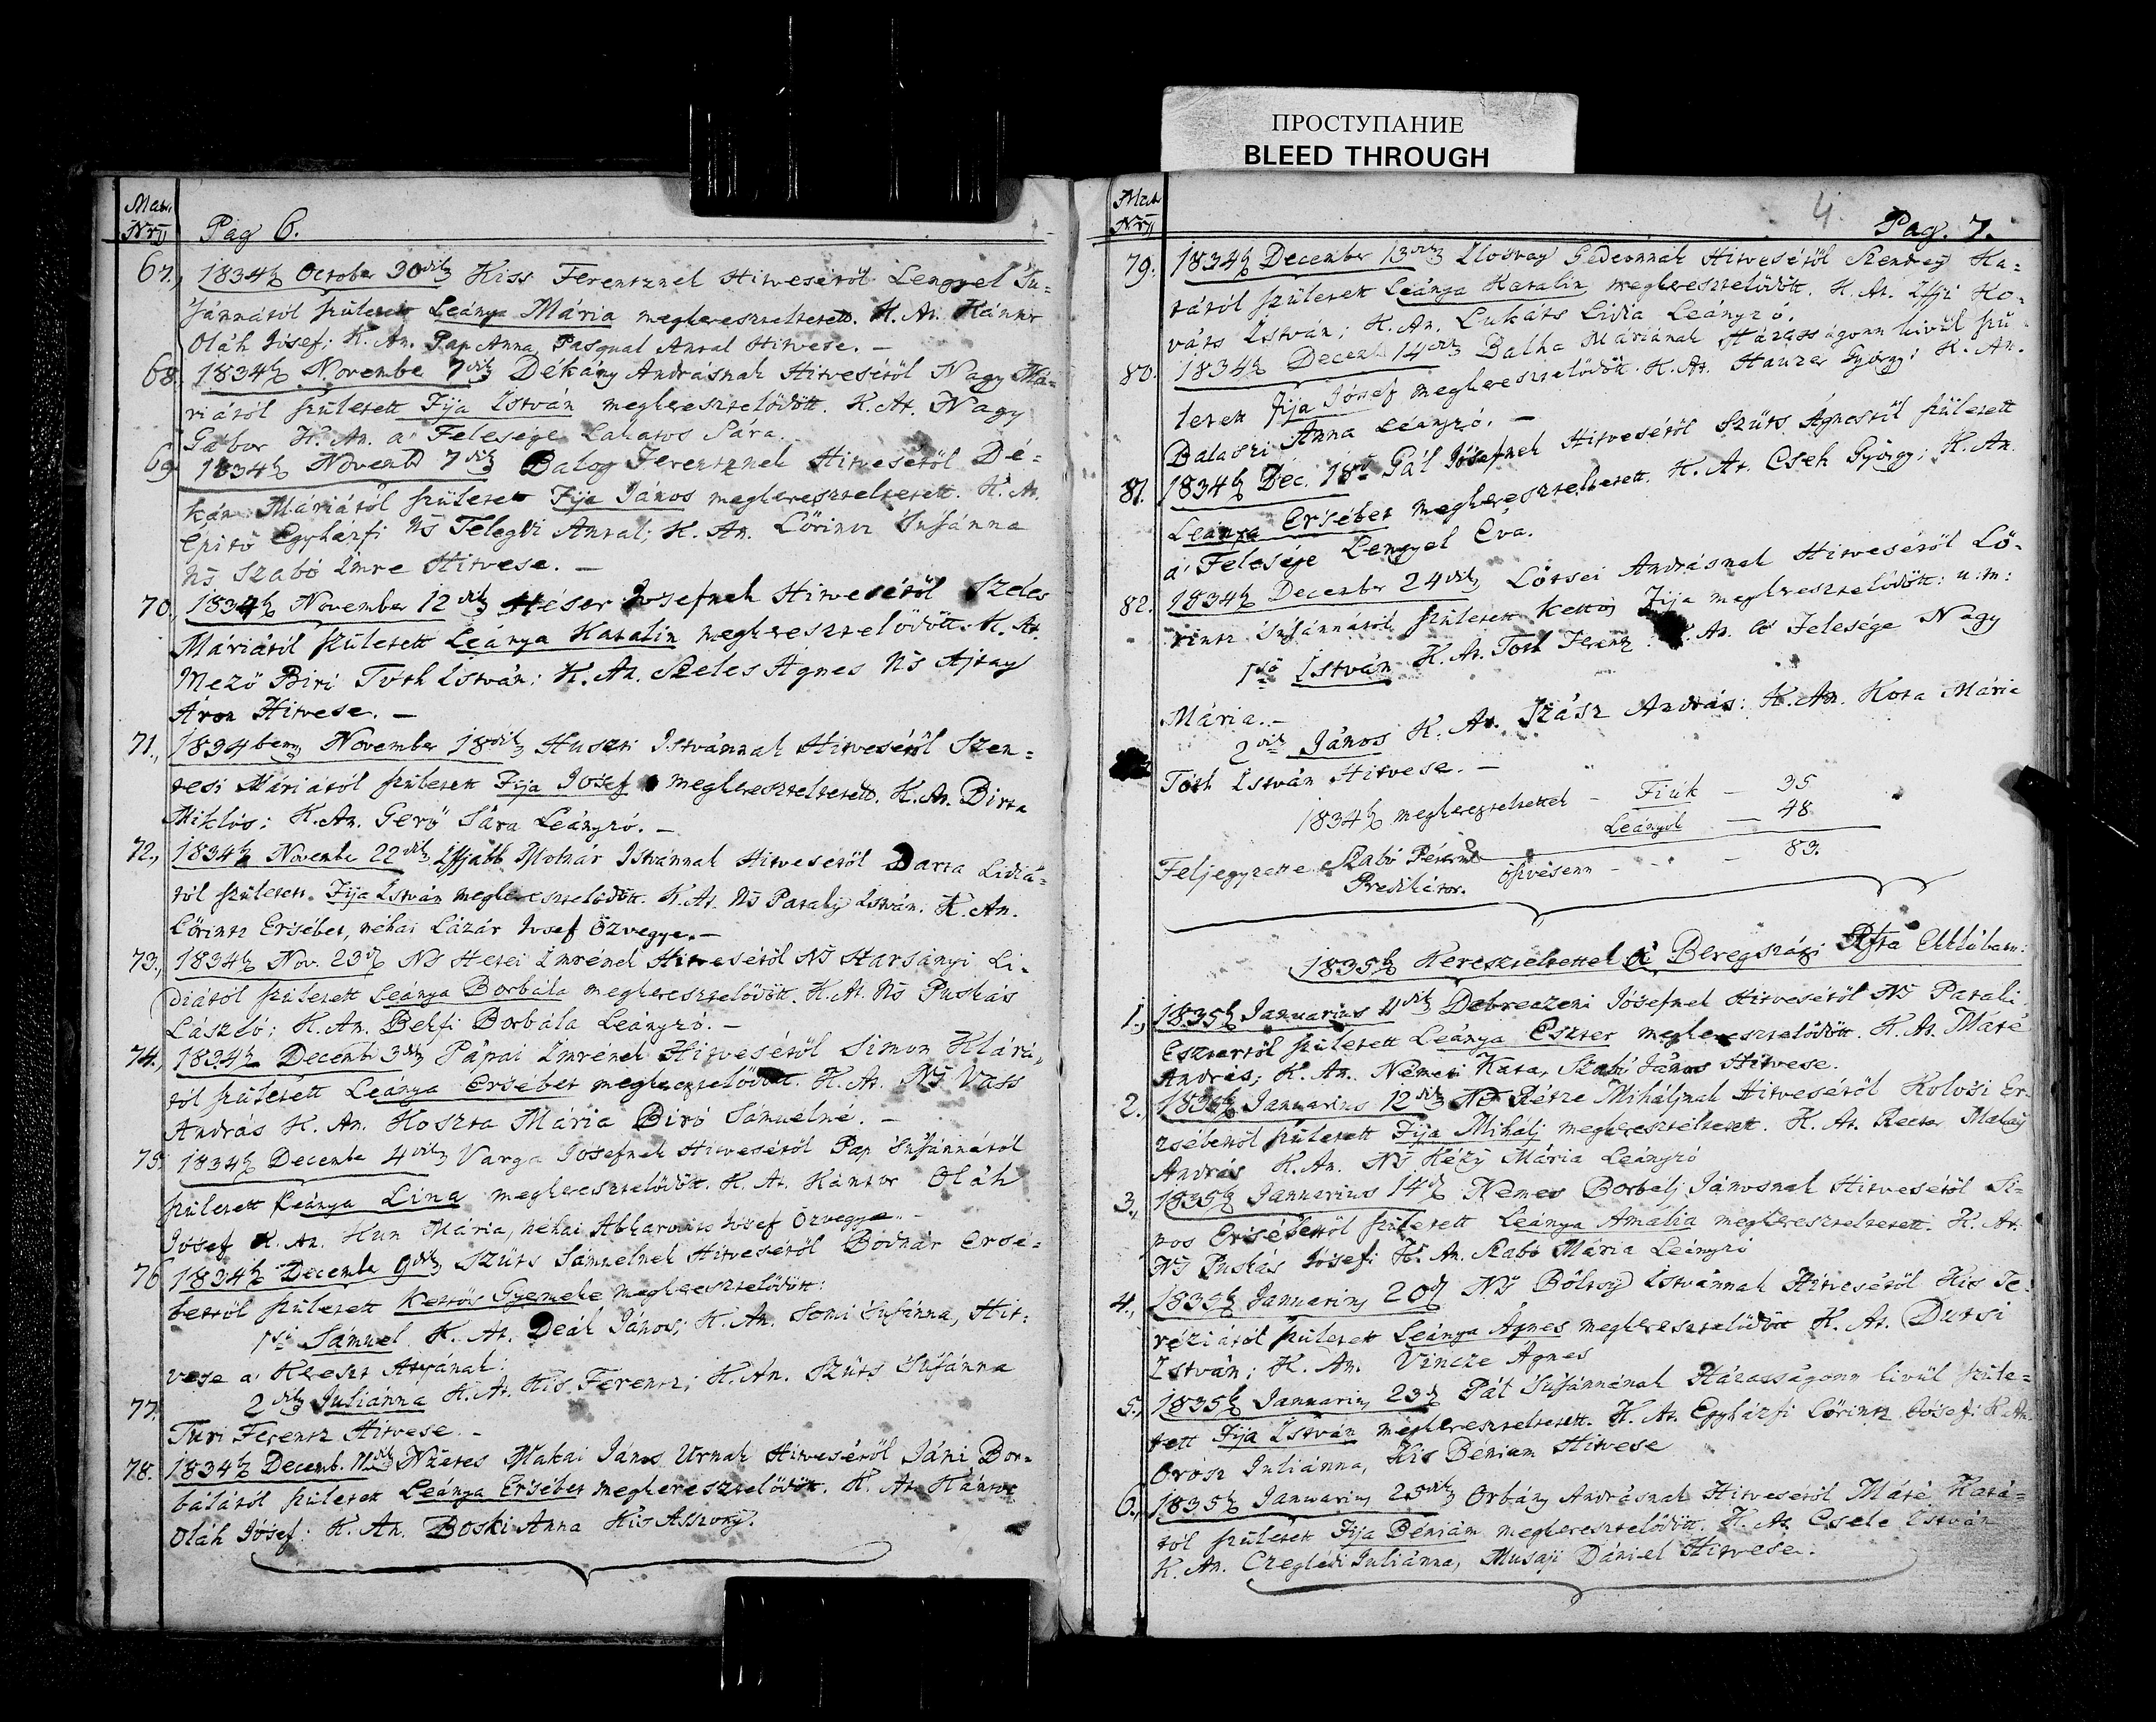 ПРОСТУПАНИЕ
BLEED THROUGH
Matr.
Nrū
Pag 6.
67., 1834b October 30dik Kiss Ferentznek Hitvesétöl Lengyel Su=
sánnától született Leánya Mária megkereszteltetett. K. At. Kántor
Oláh Jósef; K. An. Pap Anna, Pasqual Antal Hitvese. —
68. 1834b Novembe 7dik Dékány Andrásnak Hitvesétöl Nagy Má-
riától született Fija István megkeresztelödött. K. At. Nagy
Gábor K. An. a' Felesége Lakatos Sára.
69 1834b Novemb 7dik Balog Ferentznek Hitvesétöl Dé-
kán Máriától született Fija János megkereszteltetett. K. At.
Epitö Egyházfi Ns Telegdi Antal; K. An. Lörintz Susánna
Ns Szabó Imre Hitvese. —
70., 1834b November 12dik Héser Josefnek Hitvesétöl Szeles
Máriátúl született Leánya Katalin megkeresztelödött. K. At.
Mezö Biri Tóth István; K. An. Szeles Ágnes Ns Ajtay
Áron Hitvese. —
71., 1834ben November 18dik Huszti Istvánnak Hitvesétöl Szen=
tesi Máriától született Fija Josef megkereszteltetett. K. At. Birta
Miklós; K. An. Gerö Sára Leányzó. —
72., 1834b Novembe 22dik Iffjabb Molnár Istvánnak Hitvesétöl Barta Lidiá=
tól született Fija István megkeresztelödött. K. At. Ns Pataky István. K. An.
Lörintz Ersébet, néhai Lázár Josef Özvegye. —
73., 1834b Nov. 23d Ns Hetei Imrének Hitvesétöl Ns Harsányi Li-
diától született Leánya Borbála megkeresztelödött. K. At. Ns Puskás
László; K. An. Bekfi Borbála Leányzó. —
74., 1834b Decemb 3dik Pápai Imrének Hitvesétöl Simon Klárá-
tól született Leánya Ersébet megkeresztelödött. K. At. Ns Vass
András K. An. Koszta Mária Biró Sámuelné. —
75. 1834b Decembe 4dik Varga Jósefnek Hitvesétöl Pap Susánnától
született Leánya Lina megkeresztelödött. K. At. Kántor Oláh
Jósef K. An. Kun Mária, néhai Jósef Özvegye. —
76 1834b Decembe 9dik Szüts Sámuelnek Hitvesétöl Bodnár Ersé=
bettöl született Kettös Gyermeke megkeresztelödött:
1sö Sámuel K. At. Deák János; K. An. Somi Susánna, Hit:
vese a' Kereszt Atyának:
77. 2dik Juliánna K. At. Kis Ferentz; K. An. Szüts Susánna
Turi Ferentz Hitvese. —
78. 1834b Decemb. 11dik Nzetes Makai János Urnak Hitvesétöl Jáni Bor=
bálától született Leánya Ersébet megkeresztelödött. K. At. Kántor
Oláh Jósef: K. An. Boski Anna Kis Asszony.
Matr
Nrū
4.
Pag. 7.
79. 1834b December 13dik Ilosvay Gedeonnak Hitvesétöl Szendrey Ka=
tától született Leánya Katalin megkeresztelödött. K. At. Iffji Ko-
váts István; K. An. Lukáts Lidia Leányzó.
80. 1834b Decemb 14dik Balha Máriának Házasságonn kivül szü
letett Fija Jósef megkeresztelödött. K. At. Hauzer György; K. An.
Balaszi Anna Leányzó. —
81. 1834b Dec. 18d Pál Jósefnek Hitvesétöl Szüts Ágnestül született
Leánya Ersébet megkereszteltetett. K. At. Cseh György; K. An.
a' Felesége Lengyel Éva.
82. 1834b December 24dik Lötsei Andrásnak Hitvesétöl Lö-
rintz Susánnától született kettös Fija megkeresztelödött: u. m:
1sö István K. At. Tóth Ferentz: K. An. a' Felesége Nagy
Mária. —
2dik János K. At. Szász András: K. An. Kota Mária
Tóth István Hitvese. —
1834b megkereszteltettek — Fiúk — 35
Leányok — 48
Feljegyzette Szabó Péter Öszvesenn — — 83.
Predikátor.
1835b Kereszteltettek a' Beregszászi Rfta Ekklában:
1., 1835b Januarius 11dik Debreczeni Jósefnek Hitvesétöl Ns Pataki
Esztertöl született Leánya Eszter megkeresztelödött. K. At. Máté
András; K. An. Németi Kata, Szabó János Hitvese.
2., 1835b Januarius 12dik Ns Rétze Mihálynak Hitvesétöl Kolosi Er-
zsébettöl született Fija Mihálj megkereszteltetett. K. At. Rector Makay
András K. An. Ns Kézy Mária Leányzó
3., 1835b Januarius 14d Nemes Borbélj Jánosnak Hitvesétöl Si-
pos Ersébettöl született Leánya Amália megkereszteltetett. K. At.
Ns Puskás Jósef; K. An. Szabó Mária Leányzó
4., 1835b Januarius 20d Ns Böltsy Istvánnak Hitvesétöl Kis Te-
réziától született Leánya Ágnes megkeresztelödött K. At. Dutsi
István; K. An. Vincze Ágnes
5., 1835b Januarius 23d Pál Susánnának Házasságonn kivül szüle=
tett Fija István megkereszteltetett. K. At. Egyházfi Lörintz Jósef: K. An.
Orósz Juliánna, Kis Béniam Hitvese
6., 1835b Januarius 25dik Orbány Andrásnak Hitvesétöl Máté Katá=
tól született Fija Béniám megkeresztelödött. K. At. Csele István
K. An. Czeglédi Juliánna, Musaji Dániel Hitvese.